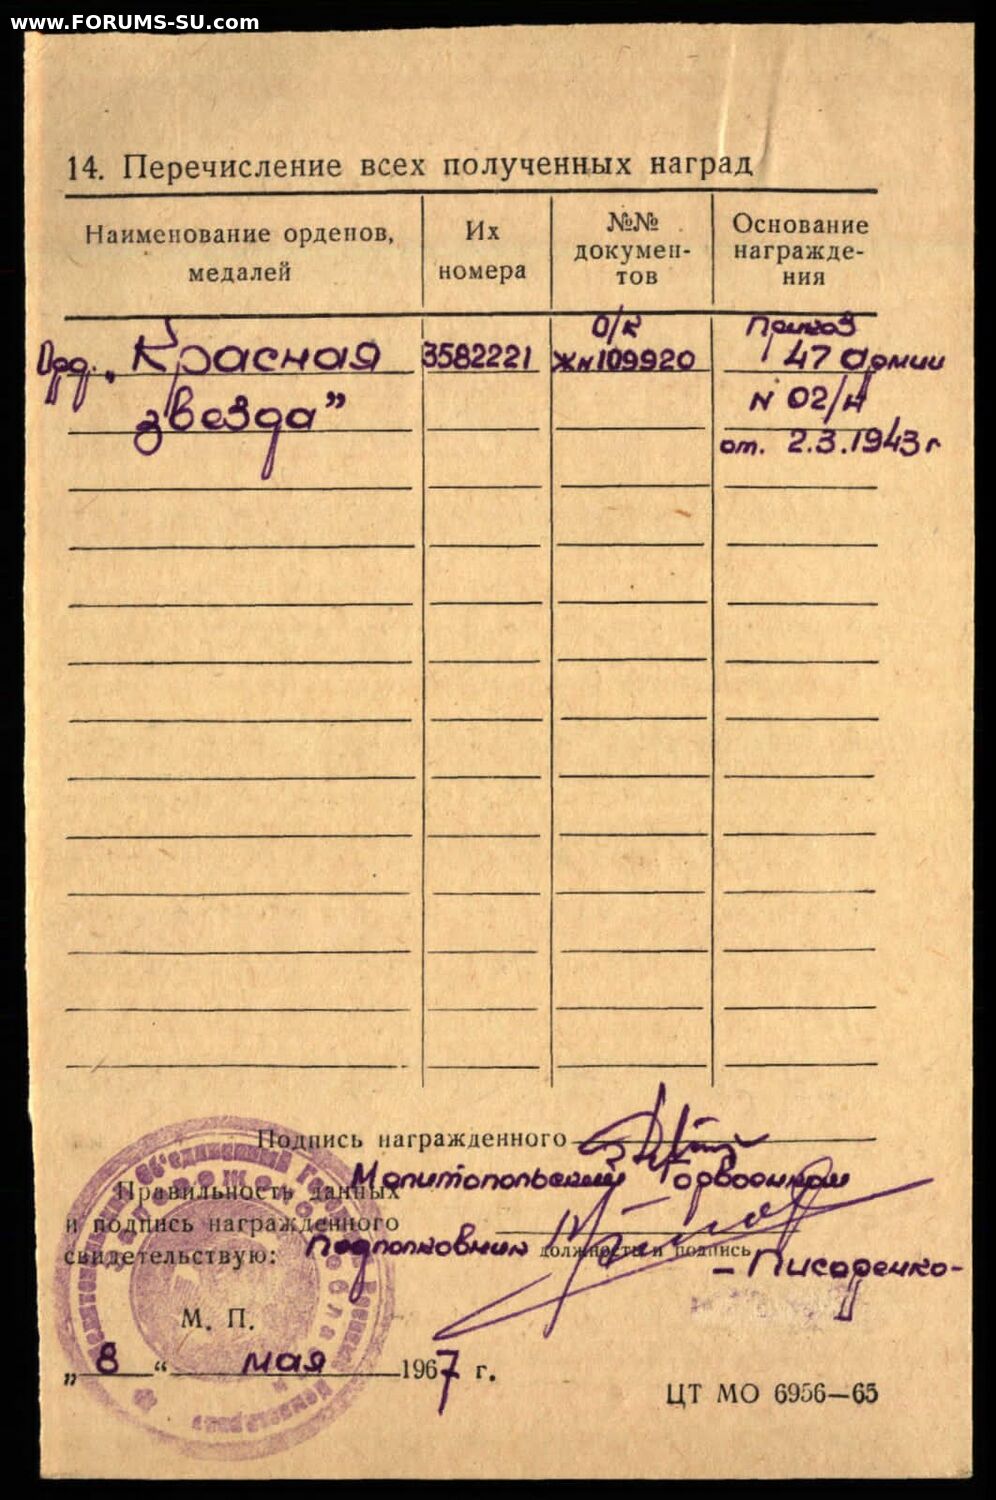 www.FORUMS-SU.com
14. Перечисление всех полученных наград
Наименование орденов, медалей
Их номера
№№ докумен-
тов
Основание
награжде-
ния
Орд. „Красная 3582221 О/К Жн109920 Приказ 47 Армии
звезда” N 02/н
от. 2.3.1943г
Подпись награжденного
Мелитопольский Горвоенком
Правильность данных
и подпись награжденного
свидетельствую: Подполковник
должность и подпись
– Писаренко –
М. П.
„ 8 “ мая 1967 г.
ЦТ МО 6956—65